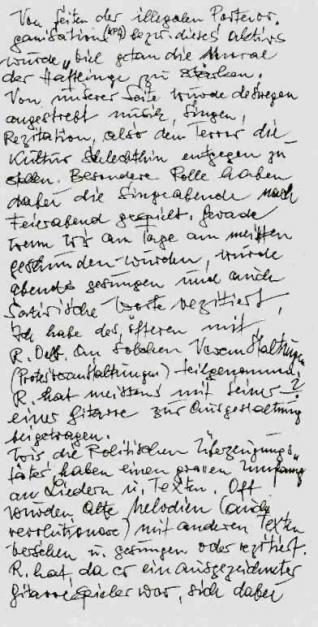 Von seiten der illegalen Parteior-
ganisation (KPD) bezw. dieses Aktivs
wurde viel getan die Moral
der Häftlinge zu stärken.
Von unserer Seite wurde deswegen
angestrebt Musik, Singen,
Rezitation, also den Terror die
Kultur schlechthin entgegen zu
stellen. Besondere Rolle haben
dabei die Singeabende nach
Feierabend gespielt. Gerade
wenn wir am Tage am meisten
geschunden wurden, wurde
abends gesungen und auch
Satirische Worte rezitiert,
Ich habe des öfteren mit
R. an solchen Veranstaltungen
teilgenommen.
R. hat meistens mit seiner ?
einer Gitarre zur Ausgestaltung
beigetragen.
Wir die Politischen Überzeugungs„
täter haben einen grossen Umfang
an Liedern u. Texten. Oft
wurden alte Melodien (auch
revolutionäre) mit anderen Texten
versehen u. gesungen oder rezitiert.
R. hat, da er ein ausgezeichneter
Gitarrespieler war, sich dabei